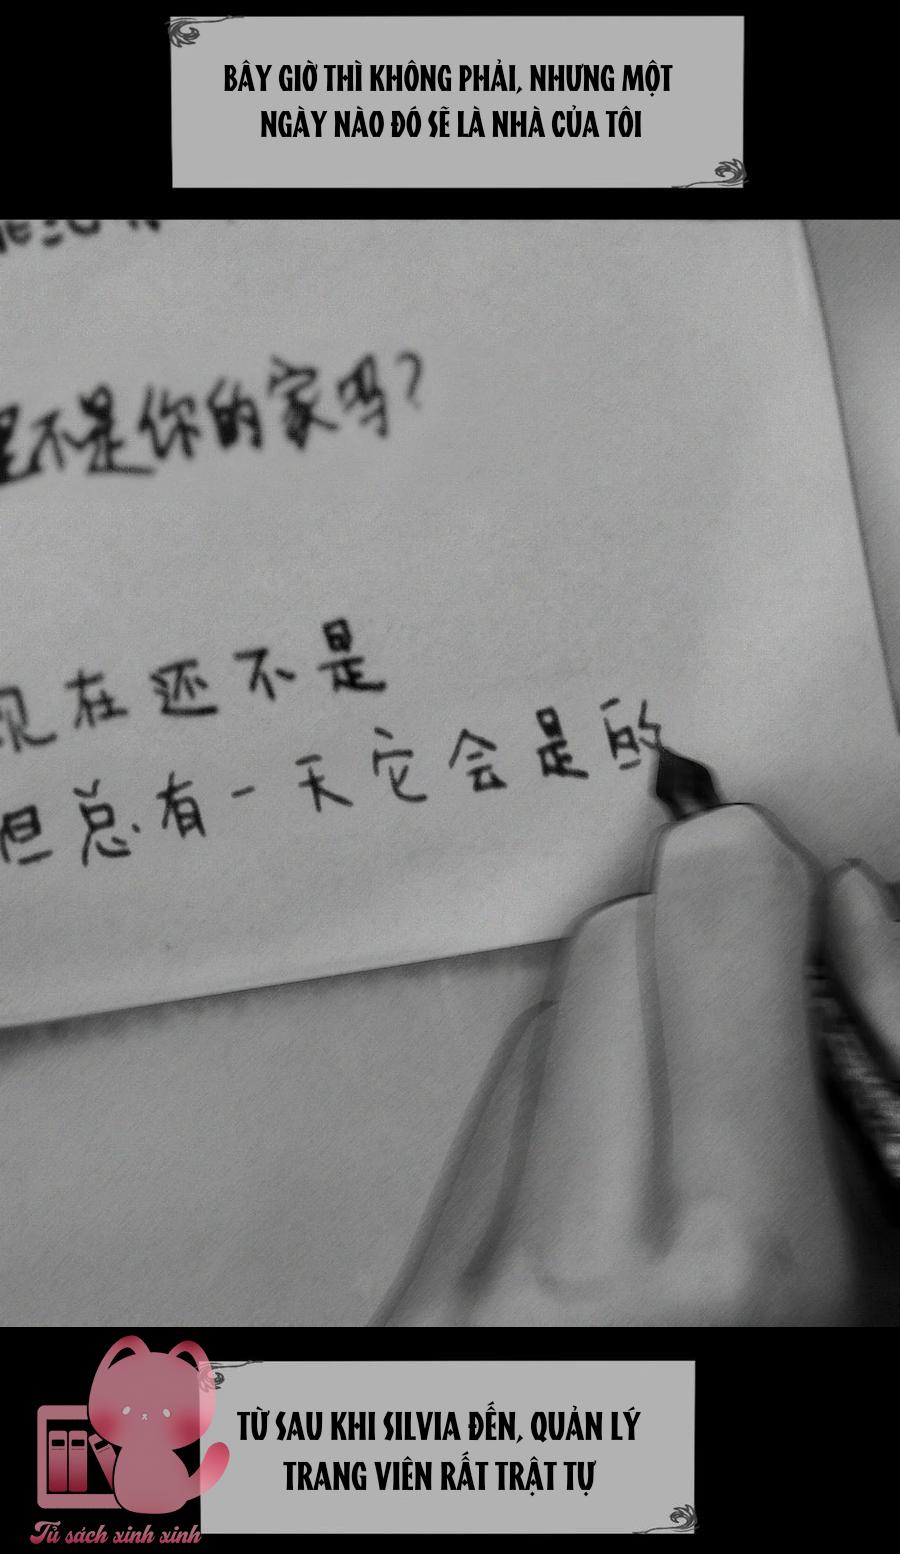 BÂY GIỜ THÌ KHÔNG PHẢI, NHƯNG MỘT
NGÀY NÀO ĐÓ SẼ LÀ NHÀ CỦA TÔI
里不是你的家吗?
现在还不是
但总有一天它会是的
TỪ SAU KHI SILVIA ĐẾN, QUẢN LÝ
TRANG VIÊN RẤT TRẬT TỰ
Tủ sách xinh xinh